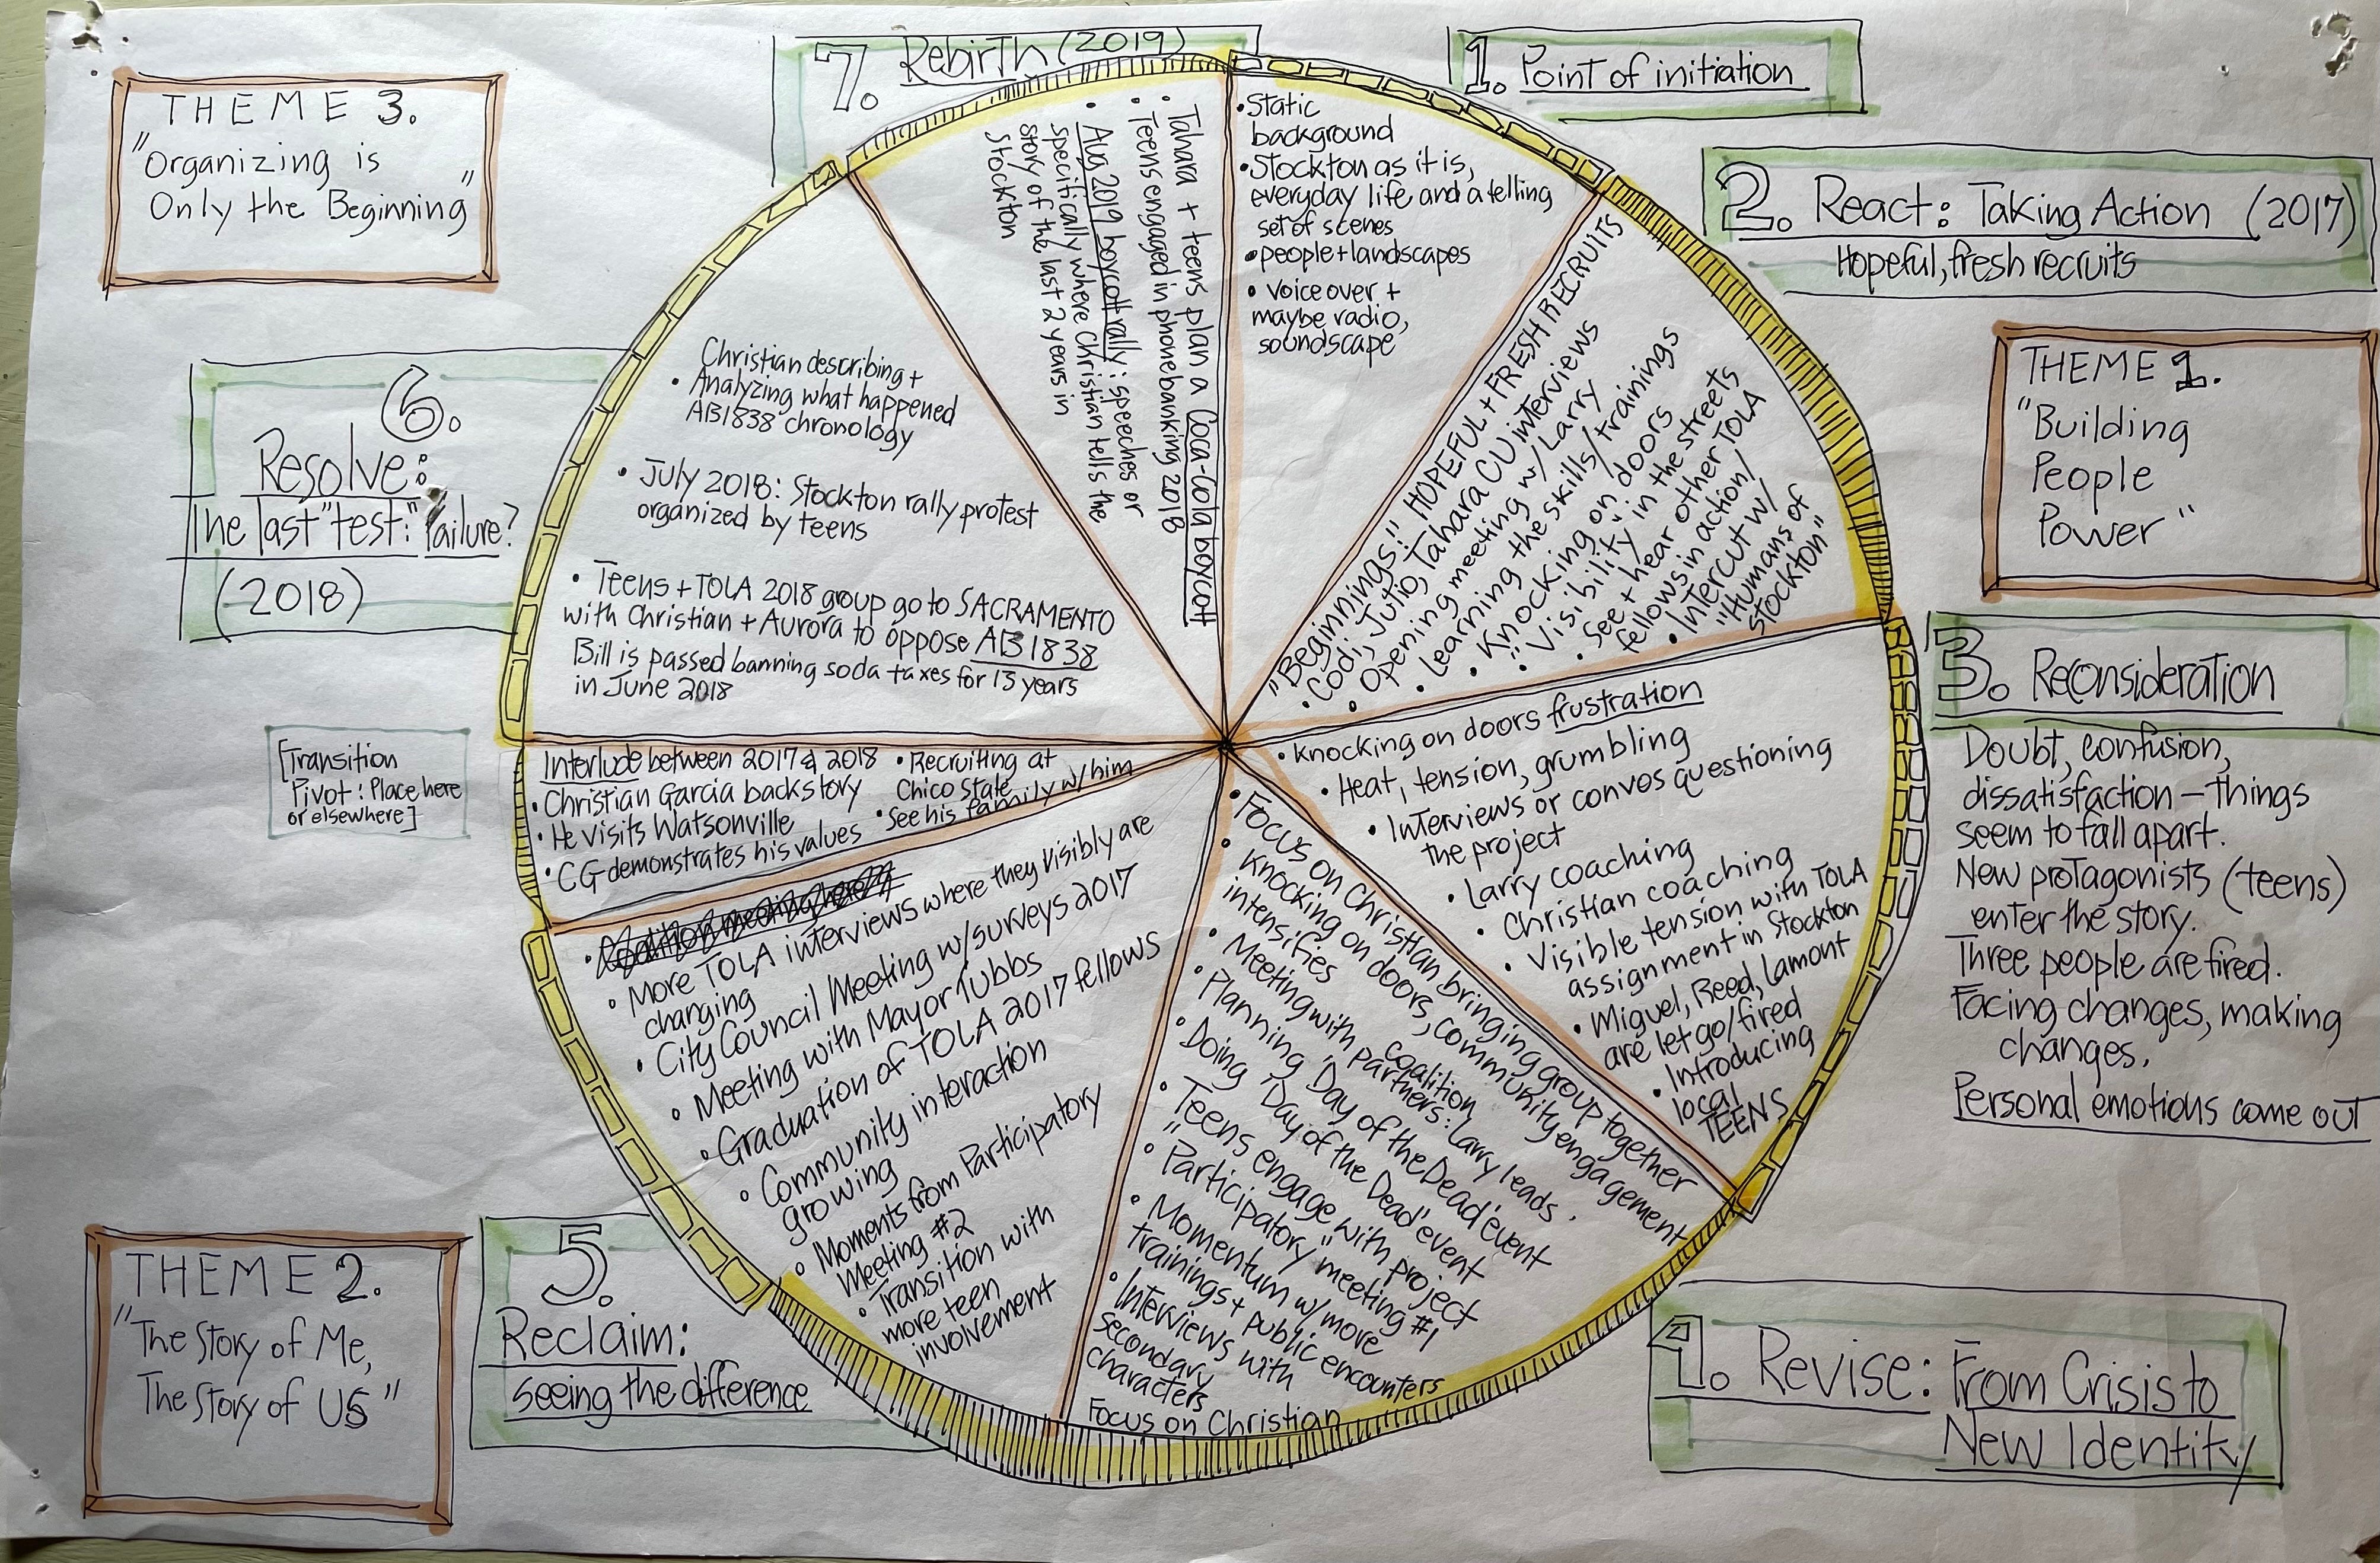 7. Rebirth (2019)
1. Point of initiation
THEME 3.
"Organizing is
Only the Beginning"
2. React: Taking Action (2017)
Hopeful, fresh recruits
THEME 1.
"Building
People
Power"
3. Reconsideration
Doubt, confusion,
dissatisfaction – things
seem to fall apart.
New protagonists (teens)
enter the story.
Three people are fired.
Facing changes, making
changes.
Personal emotions come out
4. Revise: From Crisis to
New Identity
THEME 2.
"The Story of Me,
The Story of US"
5.
Reclaim:
seeing the difference
[Transition
Pivot: Place here
or elsewhere]
6.
Resolve:
The last "test:" failure?
(2018)
• Static
background
• Stockton as it is,
everyday life and a telling
set of scenes
• people + landscapes
• voice over +
maybe radio,
soundscape
"Beginnings!" HOPEFUL + FRESH RECRUITS
• Codi, Julio, Tahara CU interviews
• Opening meeting w/ Larry
• Learning the skills/trainings
• Knocking on doors
• "Visibility" in the streets
• See + hear other TOLA
fellows in action/
• Intercut w/
"Humans of
Stockton"
• Knocking on doors frustration
• Heat, tension, grumbling
• Interviews or convos questioning
the project
• Larry coaching
• Christian coaching
• Visible tension with TOLA
assignment in Stockton
• Miguel, Reed, Lamont
are let go/fired
• Introducing
local
TEENS
• Focus on Christian bringing group together
• Knocking on doors, community engagement
intensifies
• Meeting with coalition
partners: Larry leads.
• Planning "Day of the Dead" event
• Doing "Day of the Dead" event
• Teens engage with project
• "Participatory" meeting #1
• Momentum w/ more
trainings + public encounters
• Interviews with
secondary
characters
Focus on Christian
• More TOLA interviews where they visibly are
changing
• City Council Meeting w/ surveys 2017
• Meeting with Mayor Tubbs
• Graduation of TOLA 2017 fellows
• Community interaction
growing
• Moments from Participatory
Meeting #2
• Transition with
more teen
involvement
Interlude between 2017 & 2018
• Christian Garcia backstory
• He visits Watsonville
• CG demonstrates his values
• Recruiting at
Chico State
• See his family w/ him
Christian describing +
• Analyzing what happened
AB1838 chronology
• July 2018: Stockton rally protest
organized by teens
• Teens + TOLA 2018 group go to SACRAMENTO
with Christian + Aurora to oppose AB 1838
Bill is passed banning soda taxes for 13 years
in June 2018
• Tahara + teens plan a Coca-Cola boycott
• Teens engaged in phonebanking 2018
• Aug 2019 boycott rally: speeches or
specifically where Christian tells the
story of the last 2 years in
Stockton